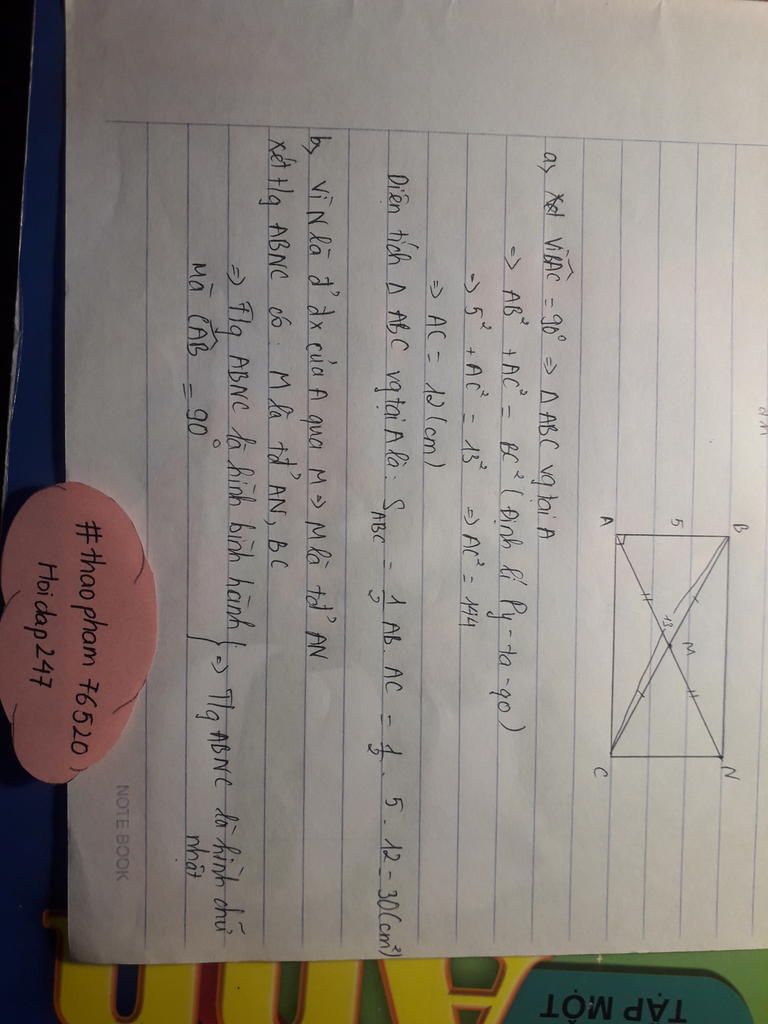 B
N
5
M
13
A
C
a, Xét vì B̂AC = 90° => Δ ABC vg tại A
=> AB² + AC² = BC² (Định lí Py-ta-go)
=> 5² + AC² = 13² => AC² = 144
=> AC = 12 (cm)
Diện tích Δ ABC vg tại A là: S_ABC = 1/2 AB. AC = 1/2 . 5 . 12 = 30 (cm²)
b, Vì N là đ' đx của A qua M => M là tđ' AN
Xét t/g ABNC có: M là tđ' AN, BC
=> T/g ABNC là hình bình hành } => T/g ABNC là hình chữ nhật
Mà ĈAB = 90°
#thaopham 76520
Hoidap247
NOTE BOOK
TẬP MỘT